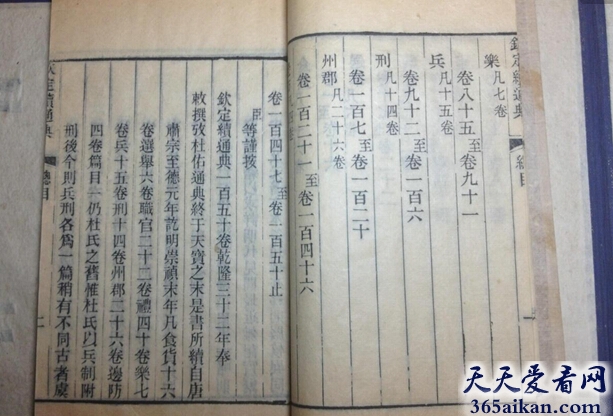 欽定續通典 總目 一
樂凡七卷
卷八十五至卷九十一
兵凡十五卷
卷九十二至卷一百六
刑凡十四卷
卷一百七至卷一百二十
州郡凡二十六卷
卷一百二十一至卷一百四十六
卷一百四十七至卷一百五十止
臣等謹按
欽定續通典一百五十卷乾隆三十二年奉
敕撰攷杜佑通典終于天寶之末是書所續自唐
肅宗至德元年訖明崇禎末年凡食貨十六
卷選舉六卷職官二十二卷禮四十卷樂七
卷兵十五卷刑十四卷州郡二十六卷邊防
四卷篇目一仍杜氏之舊惟杜氏以兵制附
刑後今則兵刑各爲一篇稍有不同古者虞
定續通典 總目 二
天天爱看网
365aikan.com